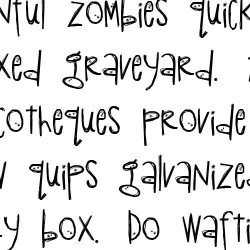 nful zombies quick
xed graveyard.
cotheques provide
quips galvanized
y box. Do wafti